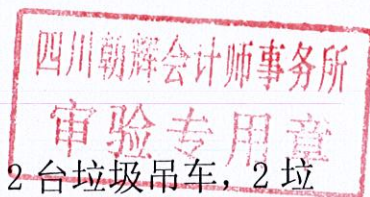 四川朝辉会计师事务所
审验专用章
2台垃圾吊车，2垃